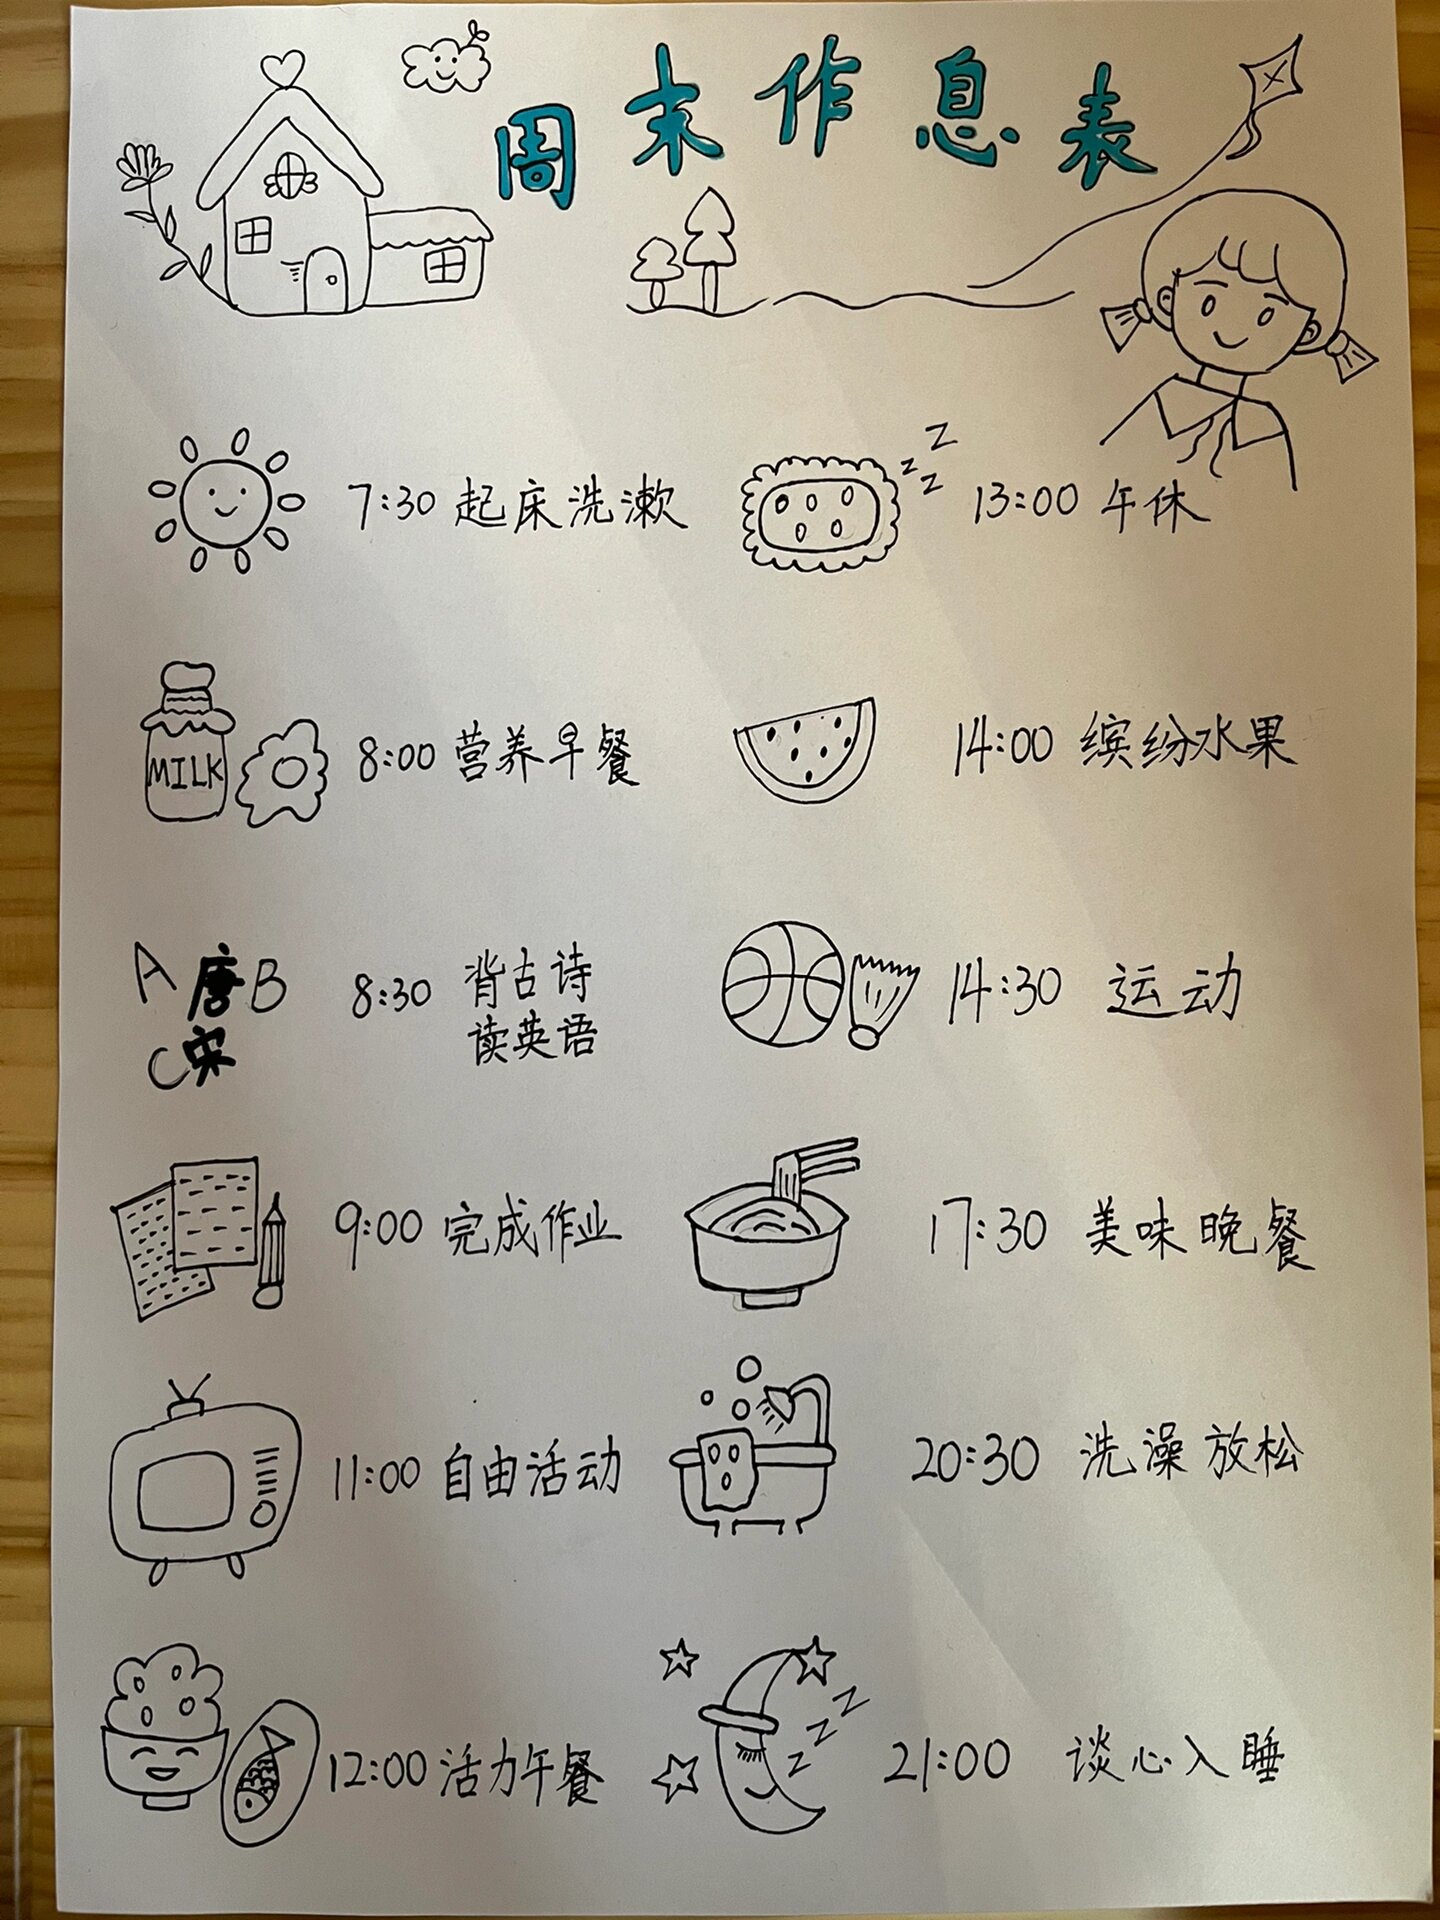 周末作息表
7:30 起床洗漱
MILK
8:00 营养早餐
A 唐 B
C 宋
8:30 背古诗
读英语
9:00 完成作业
11:00 自由活动
12:00 活力午餐
Z
Z Z
13:00 午休
14:00 缤纷水果
14:30 运动
17:30 美味晚餐
20:30 洗澡放松
Z
Z
Z
21:00 谈心入睡